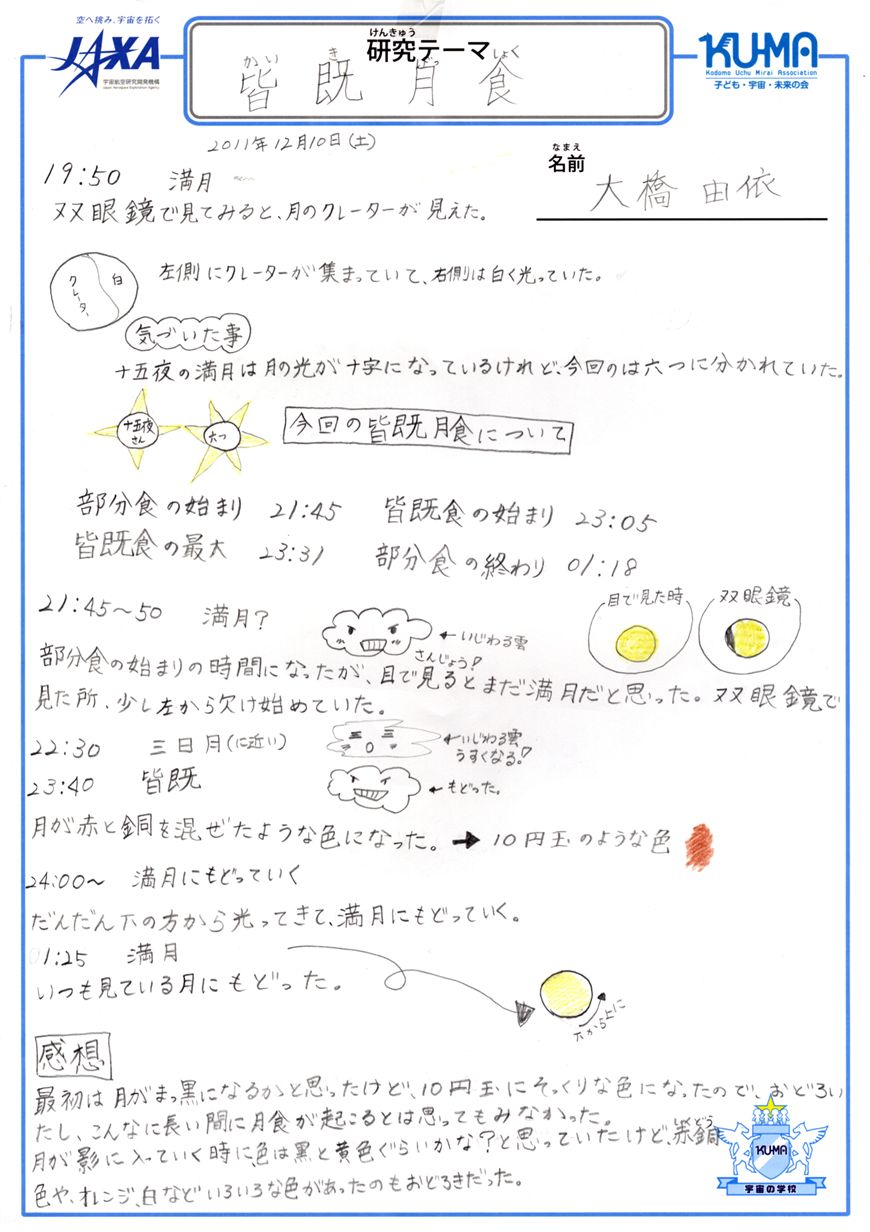 空へ挑み、宇宙を拓く
JAXA
宇宙航空研究開発機構
Japan Aerospace Exploration Agency
けんきゅう
研究テーマ
かい き げっ しょく
皆既月食
KU-MA
Kodomo Uchu Mirai Association
子ども・宇宙・未来の会
2011年12月10日(土)
なまえ
名前
大橋 由依
19:50 満月
双眼鏡で見てみると、月のクレーターが見えた。
クレーター
白
左側にクレーターが集まっていて、右側は白く光っていた。
気づいた事
十五夜の満月は月の光が十字になっているけれど、今回のは六つに分かれていた。
十五夜さん
六つ
今回の皆既月食について
部分食の始まり 21:45 皆既食の始まり 23:05
皆既食の最大 23:31 部分食の終わり 01:18
21:45~50 満月?
←いじわる雲
さんじょう!
目で見た時
双眼鏡
部分食の始まりの時間になったが、目で見るとまだ満月だと思った。双眼鏡で
見た所、少し左から欠け始めていた。
22:30 三日月(に近い)
←いじわる雲
うすくなる。!
23:40 皆既
←もどった。
月が赤と銅を混ぜたような色になった。→10円玉のような色
24:00~ 満月にもどっていく
だんだん下の方から光ってきて、満月にもどっていく。
01:25 満月
いつも見ている月にもどった。
下から上に
感想
最初は月がまっ黒になるかと思ったけど、10円玉にそっくりな色になったので、おどろい
たし、こんなに長い間に月食が起こるとは思ってもみなかった。
月が影に入っていく時に、色は黒と黄色ぐらいかな?と思っていたけど、赤銅
しゃくどう
色や、オレンジ、白などいろいろな色があったのもおどろきだった。
KU-MA
宇宙の学校